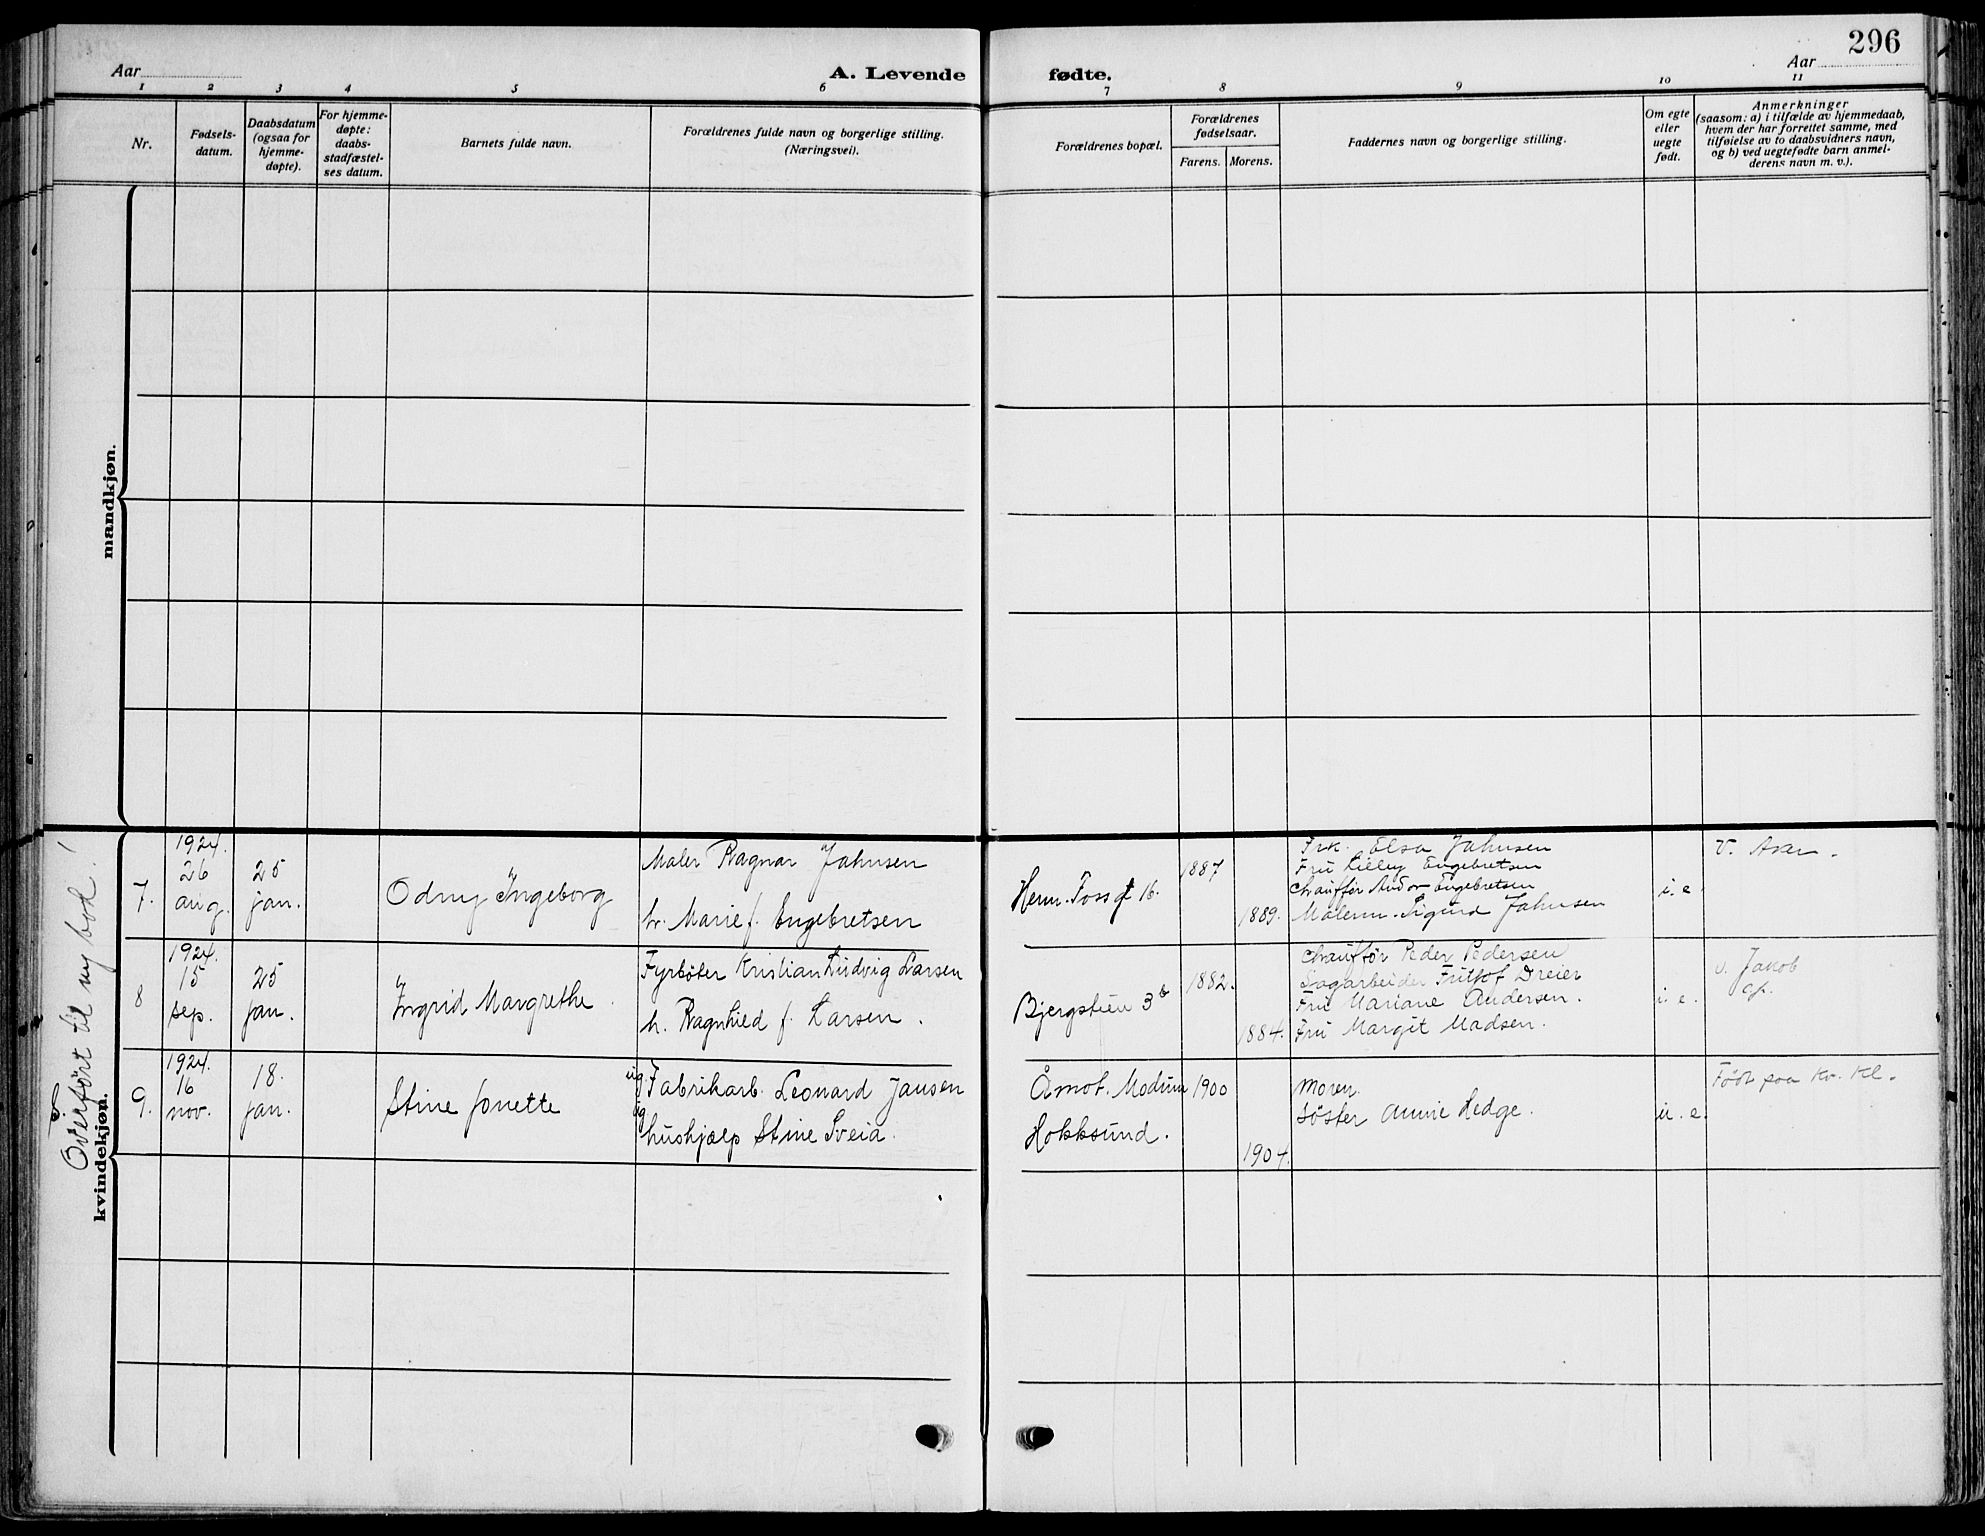 296
Aar
A. Levende fødte.
Aar
1 2 3 4 5 6 7 8 9 10 11
Nr.
Fødsels-
datum.
Daabsdatum
(ogsaa for
hjemme-
døpte).
For hjemme-
døpte:
daabs-
stadfæstel-
ses datum.
Barnets fulde navn.
Forældrenes fulde navn og borgerlige stilling.
(Næringsvei).
Forældrenes bopæl.
Forældrenes
fødselsaar.
Farens. Morens.
Faddernes navn og borgerlige stilling.
Om egte
eller
uegte
født.
Anmerkninger
(saasom: a) i tilfælde av hjemmedaab,
hvem der har forrettet samme, med
tilføielse av to daabsvidners navn,
og b) ved uegtefødte barn anmel-
derens navn m. v.).
mandkjøn.
kvindekjøn.
Overført til ny bok!
7.
1924.
26
aug.
25
jan.
Odny Ingeborg
Maler Ragnar Jahnsen
h. Marie f. Engebretsen
Herm. Fossgt 16.
1887
1889.
Frk. Elsa Jahnsen
Fru Lilley Engebretsen
Chauffør Andor Engebretsen
Malerm. Sigurd Jahnsen
i. e.
v. Aran.
8
1924.
15
sep.
25
jan.
Ingrid Margrethe.
Fyrbøter Kristian Ludvig Larsen
h. Ragnhild f. Larsen.
Bjergstien 3b
1882.
1884.
Chauffør Peder Pedersen
Sagarbeider Fritjof Dreier
Fru Mariane Andersen.
Fru Margit Madsen.
i. e.
v. Jakob
9.
1924.
16
nov.
18.
jan.
Stine Jonette
ug. Fabrikarb. Leonard Jansen
ug hushjælp Stine Sveia.
Åmot. Modum
Hokksund.
1900
1904.
Moren.
Søster Annie Hedge.
u. e.
Født paa Kv. Kl.